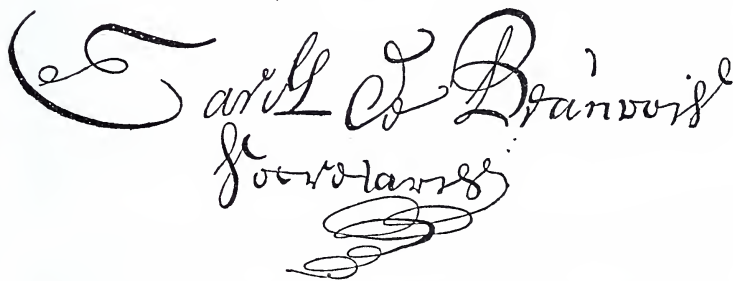 Carel De Beauvois
Secretaris